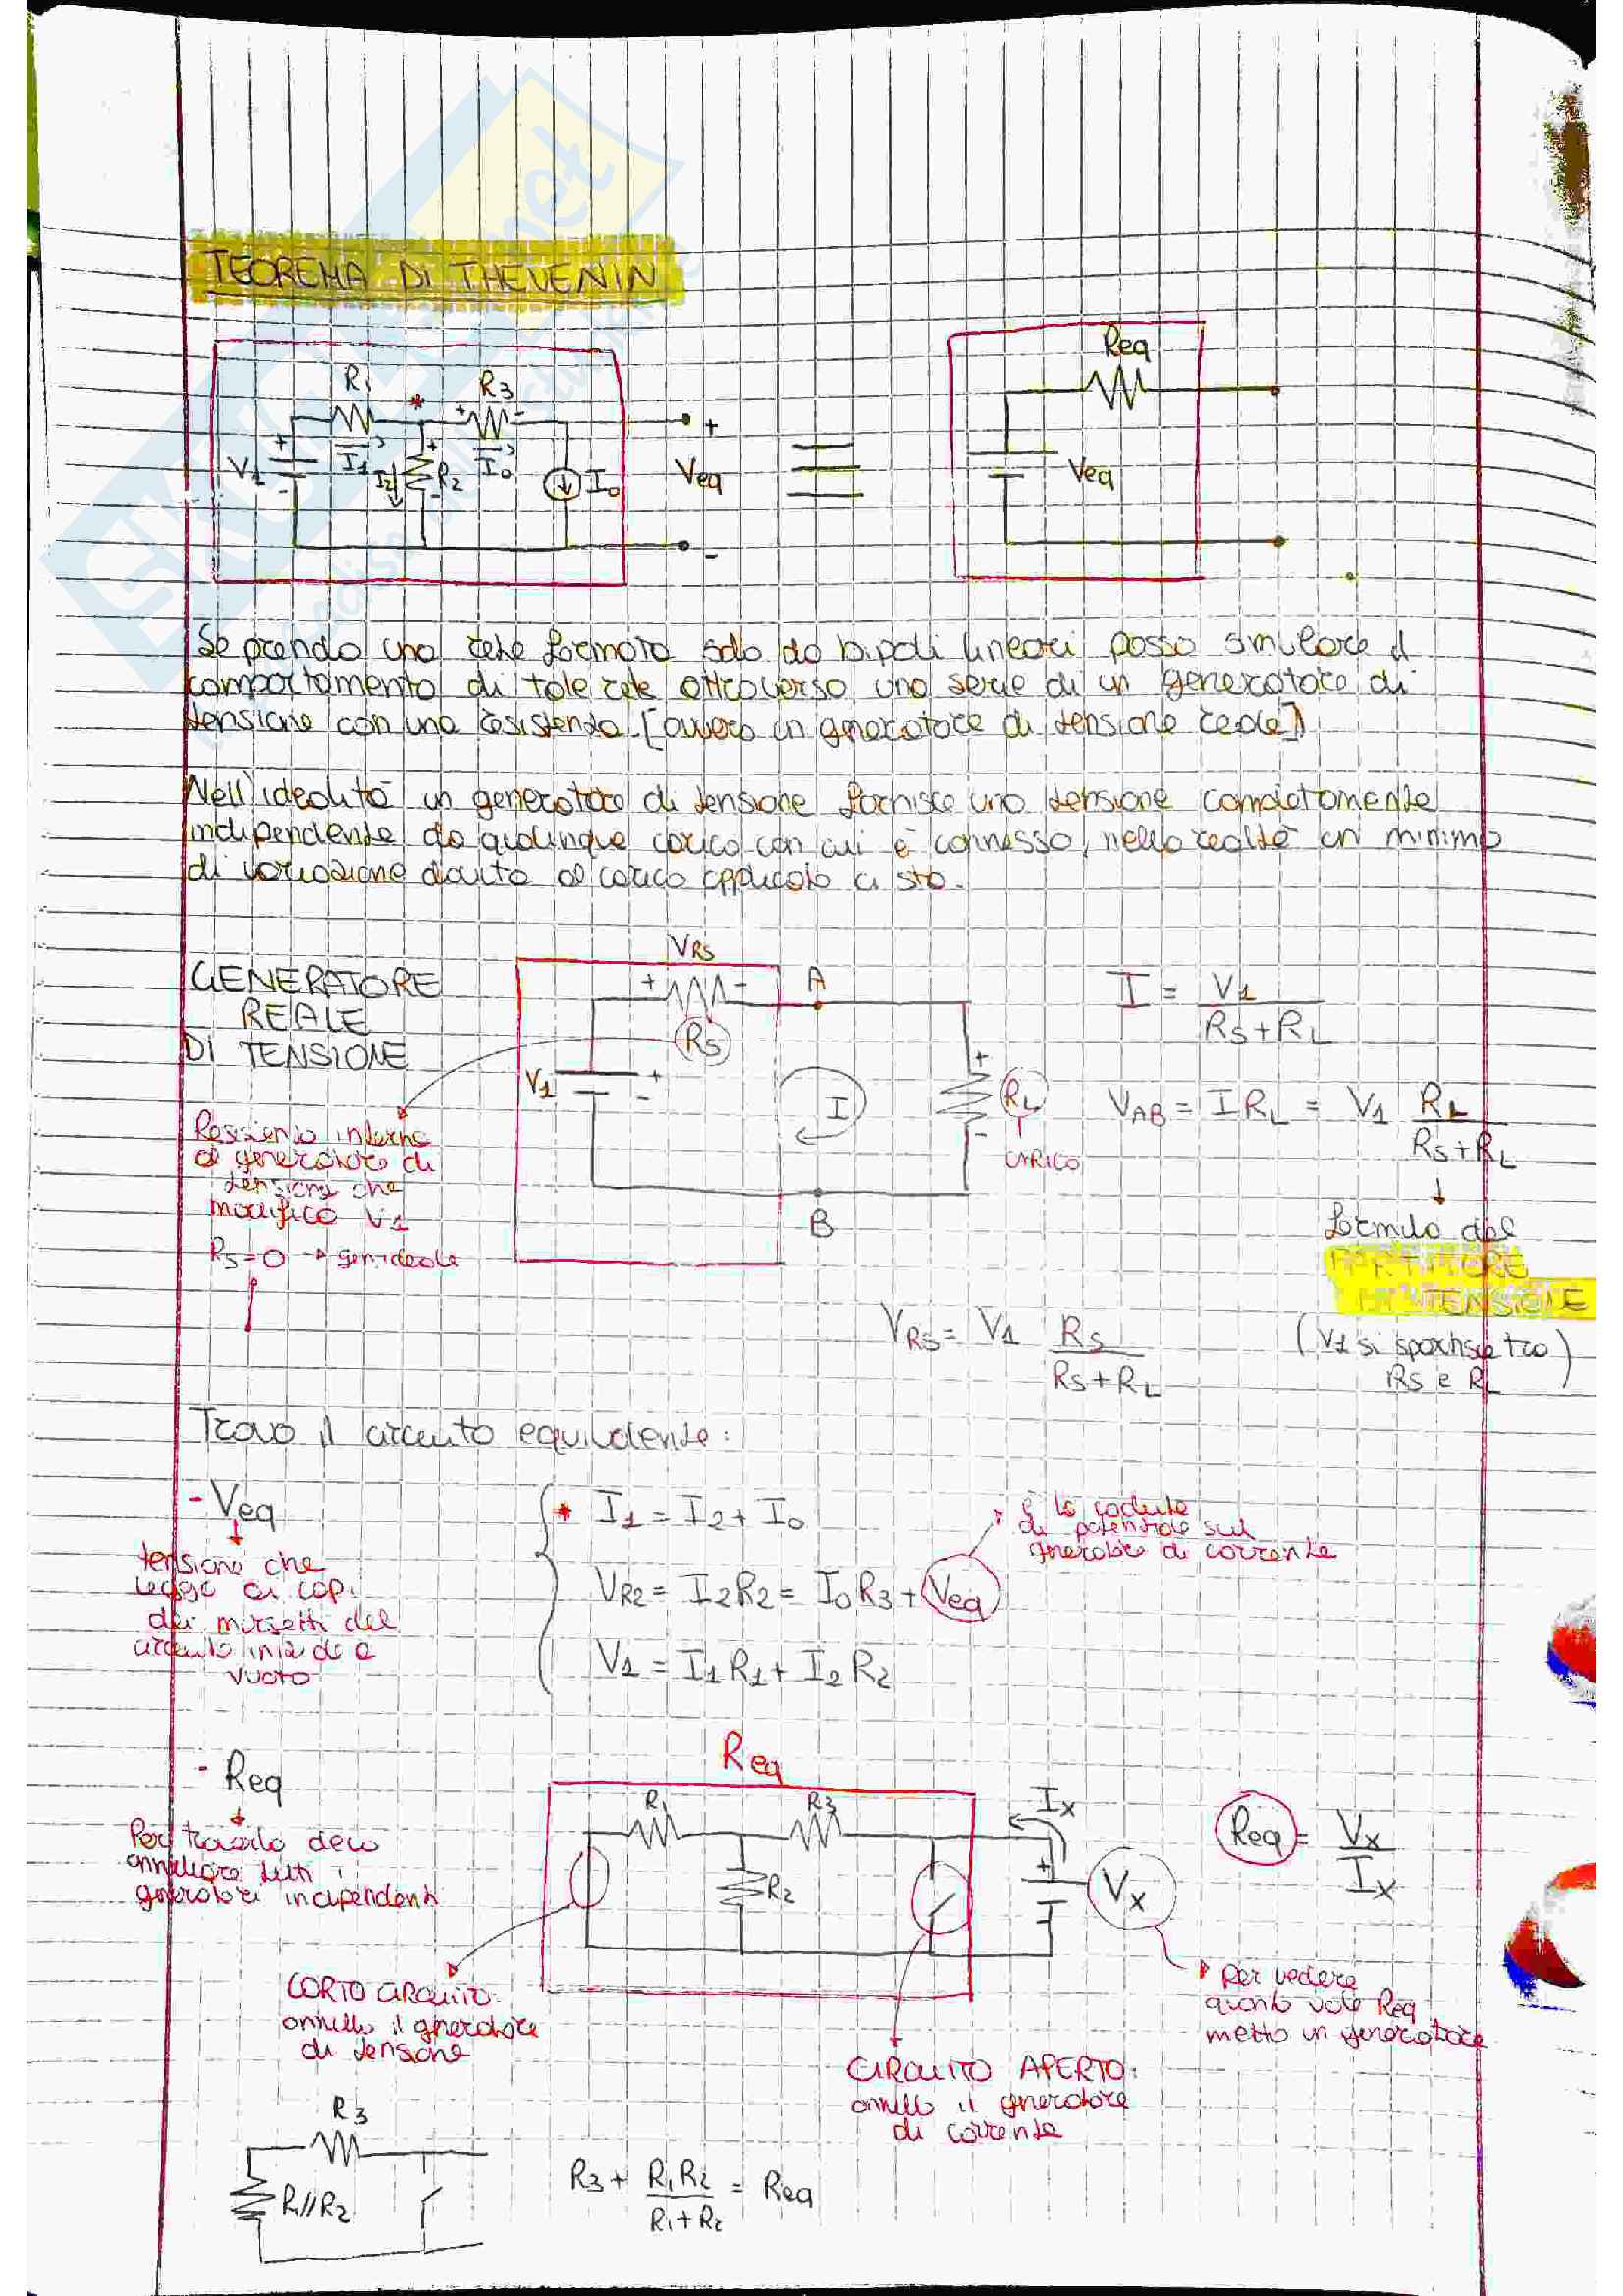 TEOREMA DI THEVENIN
R1
R3
*
+
-
V1
I1
I2
R2
I0
I0
+
Veq
-
Req
Veq
Se prendo una rete formata solo da bipoli lineari posso simulare il
comportamento di tale rete attraverso una serie di un generatore di
tensione con una resistenza. [ovvero un generatore di tensione reale]
Nell'idealità un generatore di tensione fornisce una tensione completamente
indipendente da qualunque carico con cui è connesso, nella realtà un minimo
di variazione dovuta al carico applicato ci sta.
GENERATORE
REALE
DI TENSIONE
VRS
+ -
RS
A
V1
+
-
I
+
RL
-
CARICO
B
I = V1 / RS+RL
VAB = I RL = V1 RL / RS+RL
Resistenza interna
al generatore di
tensione che
modifica V1
RS=0 → gen. ideale
formula del
PARTITORE
DI TENSIONE
(V1 si spartisce tra
RS e RL)
VRS = V1 RS / RS+RL
Trovo il circuito equivalente:
- Veq
tensione che
leggo ai capi
dei morsetti del
circuito iniziale a
vuoto
* I1 = I2 + I0
VR2 = I2R2 = I0R3 + Veq
V1 = I1R1 + I2R2
è la caduta
di potenziale sul
generatore di corrente
- Req
Per trovarla devo
annullare tutti i
generatori indipendenti
Req
R1
R3
R2
Ix
+
Vx
Req = Vx / Ix
CORTO CIRCUITO:
annullo il generatore
di tensione
CIRCUITO APERTO:
annullo il generatore
di corrente
per vedere
quanto vale Req
metto un generatore
R3
R1//R2
R3 + R1R2 / R1+R2 = Req